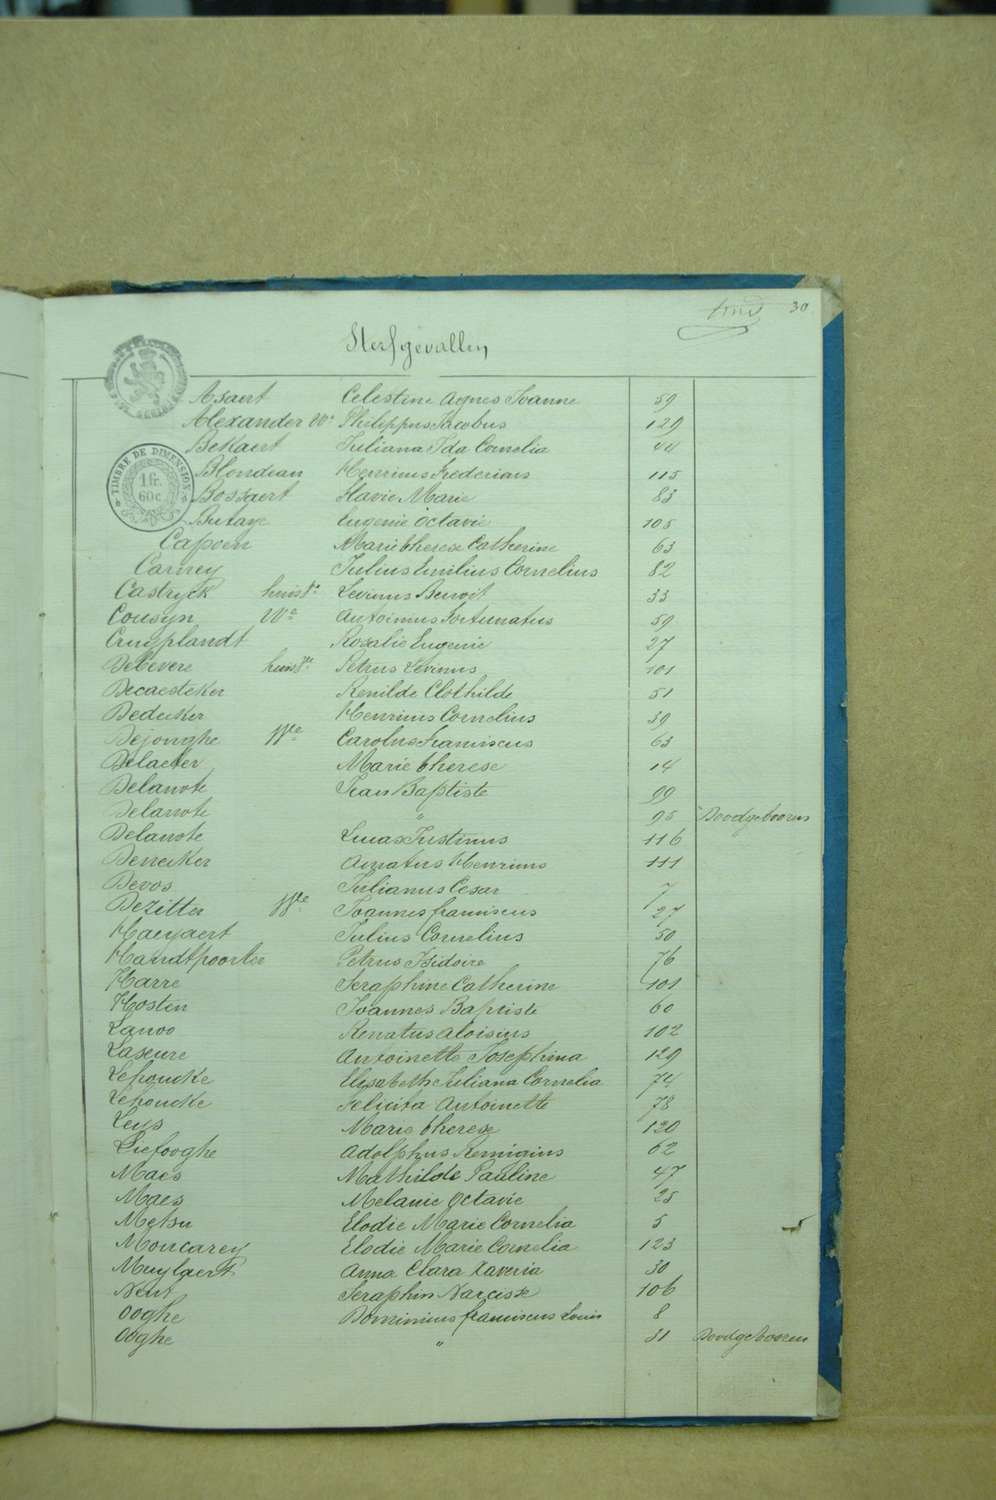 30
Sterfgevallen
TIMBRE DE DIMENSION
1 fr.
60 c.
Asaert Celestine Agnes Joanne 59
Alexander We Philippus Jacobus 129
Bekaert Juliana Ida Cornelia 44
Blondeau Henricus Frederiaus 115
Bossaert Flavie Marie 83
Butaye Eugenie Octavie 105
Capoen Marie therese Catherine 63
Carney Julius Emilius Cornelius 82
Castryck huisve Levinus Benoit 33
Cousyn We Antoinius Fortunatus 59
Cruyplandt Rosalie Eugenie 27
Debevere huisve Petrus Levinus 101
Decaesteker Renilde Clothilde 51
Dedecker Henricus Cornelius 39
Dejonghe Wwe Carolus Franciscus 63
Delaeter Marie therese 14
Delanote Jean Baptiste 99
Delanote " 95 Doodgebooren
Delanote Lucas Justinus 116
Denecker Amatus Henricus 111
Devos Julianus Cesar 7
Dezitter Wwe Joannes franciscus 27
Haeyaert Julius Cornelius 50
Handtpoorter Petrus Isidoire 76
Harre Seraphine Catherine 101
Hosten Joannes Baptiste 60
Lanoo Renatus Aloisius 102
Laseure Antoinette Josephina 129
Lehoucke Elisabeth Juliana Cornelia 74
Lehoucke Felicita Antoinette 78
Leys Marie therese 120
Liefooghe Adolphus Remigius 62
Maes Mathilde Pauline 47
Maes Melanie Octavie 25
Metsu Elodie Marie Cornelia 5
Moncarey Elodie Marie Cornelia 123
Muylaert Anna Clara Xaveria 30
Neut Seraphin Narcisse 106
Ooghe Dominicus franciscus Louis 8
Ooghe " 31 Doodgebooren